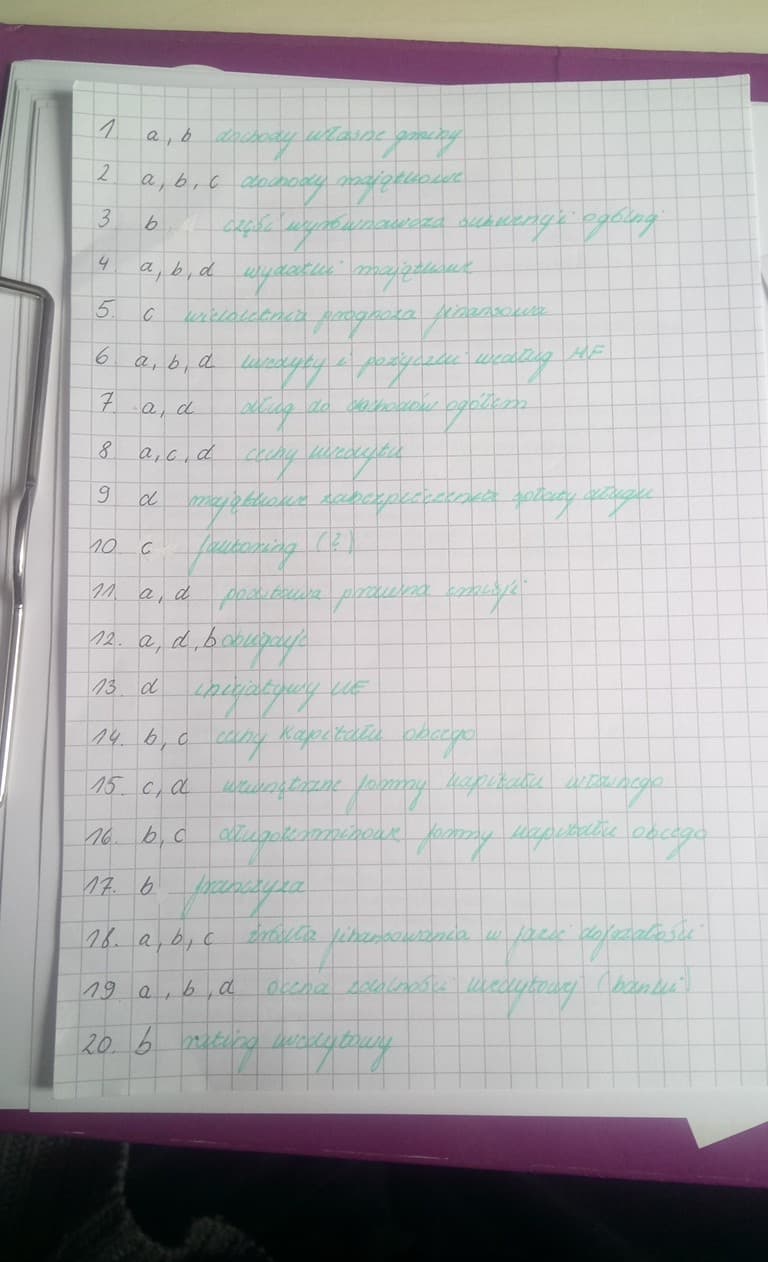 1 a, b dochody własne gminy
2 a, b, c dochody majątkowe
3 b część wyrównawcza subwencji ogólnej
4. a, b, d wydatki majątkowe
5. c wieloletnia prognoza finansowa
6 a, b, d kredyty i pożyczki według MF
7. a, d dług do dochodów ogółem
8 a, c, d cechy kredytu
9 d majątkowe zabezpieczenia spłaty długu
10 c faktoring (?)
11. a, d podstawa prawna emisji
12. a, d, b obligacje
13 d inicjatywy UE
14. b, c cechy kapitału obcego
15. c, d wewnętrzne formy kapitału własnego
16. b, c długoterminowe formy kapitału obcego
17. b franczyza
18. a, b, c źródła finansowania w fazie dojrzałości
19 a, b, d ocena zdolności kredytowej (banki)
20. b rating kredytowy